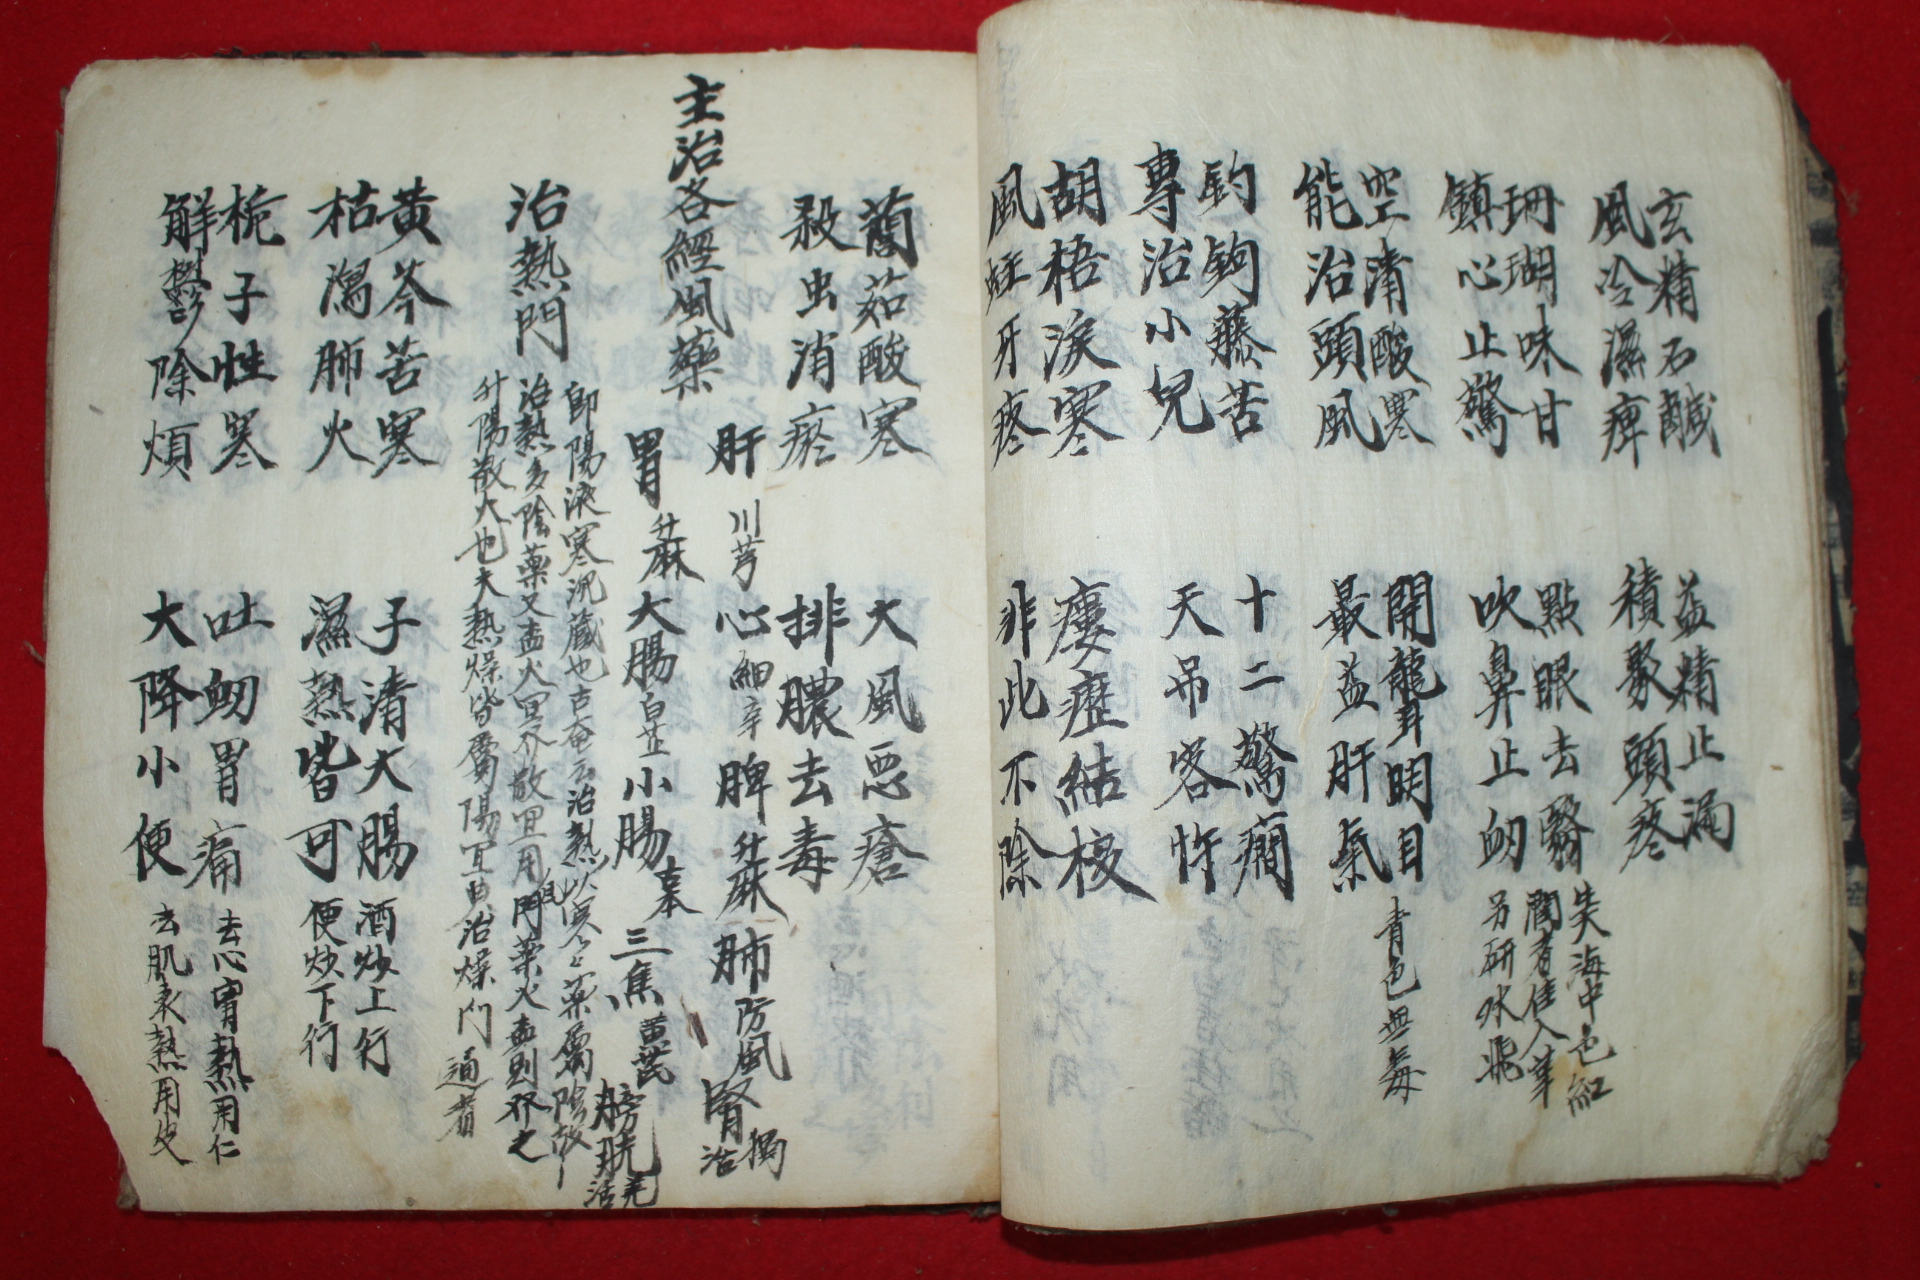 玄精石鹹
風冷濕痺
益精止漏
積聚頭疼
珊瑚味甘
鎮心止驚
點眼去翳
吹鼻止衂
生海中色紅
潤者佳入藥
另研水飛
空清酸寒
能治頭風
開聾明目
最益肝氣
青色無毒
釣鉤藤苦
專治小兒
十二驚癎
天吊客忤
胡梧淚寒
風蛀牙疼
瘻癧結核
非此不除
藺茹酸寒
殺虫消瘀
大風惡瘡
排膿去毒
主治各經風藥
肝 川芎 心 細辛 脾 升麻 肺 防風 腎 獨活
胃 升麻 大腸 白芷 小腸 藁本 三焦 黃芪 膀胱 羌活
治熱門
即陽液寒汎藏也古奄云治熱以寒々藥屬陰故
治熱多陰藥又盂火冥不散宜用門藥火盂則
升陽散火也夫熱燥皆屬陽宜與治燥门通看
黃芩苦寒
枯瀉肺火
子清大腸
濕熱皆可
酒炒上行
便炒下行
梔子性寒
解鬱除煩
吐衂胃痛
大降小便
去心胃熱用仁
去肌表熱用皮